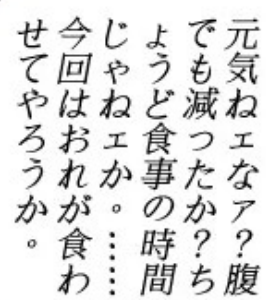 元気ねェなァ？腹
でも減ったか？ち
ょうど食事の時間
じゃねェか。……
今回はおれが食わ
せてやろうか。